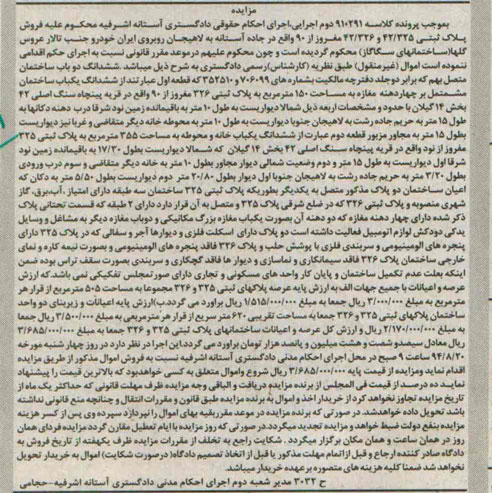 مزایده
بموجب پرونده کلاسه ۹۱۰۲۹۱ دوم اجرایی،اجرای احکام حقوقی دادگستری آستانه اشرفیه محکوم علیه فروش
پلاک ثبتی ۴۲/۳۲۵ و ۴۲/۳۲۶ مفروز از ۹۰ واقع در جاده آستانه به لاهیجان روبروی ایران خودرو جنب تالار عروس
گلها(ساختمانهای سگاگاز) محکوم گردیده است و چون محکوم علیهم درموعد مقرر قانونی نسبت به اجرای حکم اقدامی
ننموده است اموال (غیرمنقول) طبق نظریه (کارشناس)رسمی دادگستری به شرح ذیل میباشد .ششدانگ دو باب ساختمان
متصل بهم که برابر دوجلد دفترچه مالکیت بشماره های ۷۰۶۰۹۹ و ۳۵۲۵۱۰ که قطعه اول عبارتند از ششدانگ یکباب ساختمان
مشتمل بر چهاردهنه مغازه به مساحت ۱۵۰ مترمربع به پلاک ثبتی ۳۲۶ مفروز از ۹۰ واقع در قریه پینچاه سنگ اصلی ۴۲
بخش ۱۴ گیلان با حدود و مشخصات اربعه ذیل شمالا دیواریست به طول ۱۰ متر به باقیمانده زمین نود شرقا درب دهنه دکانها به
طول ۱۵ متر به حریم جاده رشت به لاهیجان جنوبا دیواریست به طول ۱۰ متر به محوطه خانه دیگر متقاضی و غربا نیز دیواریست
بطول ۱۵ متر به مجاور مزبور قطعه دوم عبارت از ششدانگ یکباب خانه و محوطه به مساحت ۳۵۵ مترمربع به پلاک ثبتی ۳۲۵
مفروز از نود واقع در قریه پینچاه سنگ اصلی ۴۲ بخش ۱۴ گیلان که شمالا دیواریست به طول ۱۷/۳۰ به باقیمانده زمین نود
شرقا اول دیواریست به طول ۱۵ متر و دوم وضعیت شمالی دیوار مجاور بطول ۱۰ متر به خانه دیگر متقاضی و سوم درب ورودی
بطول ۳/۲۰ متر به حریم جاده رشت به لاهیجان جنوبا اول دیوار بطول ۲۰/۸۰ متر دوم دیواریست بطول ۵/۵۰ متر به دکان که
اعیان ساختمان دو پلاک مذکور متصل به یکدیگر بطوریکه پلاک ثبتی ۳۲۵ ساختمان سه طبقه دارای امتیاز ،آب،برق، گاز
شهری منصوبه و پلاک ثبتی ۳۲۶ که در ضلع شرقی پلاک ۳۲۵ و متصل به آن قرار دارد دارای ۲ طبقه که قسمت تحتانی پلاک
ذکر شده دارای چهار دهنه مغازه که دو دهنه آن بصورت یکباب مغازه بزرگ مکانیکی و دوباب مغازه دیگر به مشاغل و وسایل
یدکی دودکش لوازم اتومبیل فعالیت داشته است دو پلاک دارای اسکلت فلزی و دیوارها آجر و سفالی که در پلاک ۳۲۵ دارای
پنجره های الومینیومی و سربندی فلزی با پوشش حلب و پلاک ۳۲۶ فاقد پنجره های الومینیومی و بصورت نیمه کاره و نمای
خارجی ساختمان پلاک ۳۲۶ فاقد سیمانکاری و نماسازی و دیوار ها فاقد گچکاری و سربندی بصورت سقف تراس بوده ضمن
اینکه بعلت عدم تکمیل ساختمان و پایان کار واحد های مسکونی و تجاری دارای صورتمجلس تفکیکی نمی باشد.که ارزش
عرصه و اعیانات با جمیع جهات الف به ارزش پایه عرصه پلاکهای ثبتی ۳۲۵ و ۳۲۶ مجموعا به مساحت ۵۰۵ مترمربع از قرار هر
مترمربع به مبلغ ۳/۰۰۰/۰۰۰ ریال جمعا به مبلغ ۱/۵۱۵/۰۰۰/۰۰۰ ریال براورد می گردد.ب)ارزش پایه اعیانات و زیربنای دو واحد
ساختمان پلاکهای ثبتی ۳۲۵ و ۳۲۶ جمعا به مساحت تقریبی ۶۲۰ متر سربع از قرار هر مترمربعی به مبلغ ۳/۵۰۰/۰۰۰ ریال جمعا
به مبلغ ۲/۱۷۰/۰۰۰/۰۰۰ ریال و ارزش کل عرصه و اعیانات ساختمانهای پلاک ثبتی ۳۲۵ و ۳۲۶ جمعا به مبلغ ۳/۶۸۵/۰۰۰/۰۰۰
ریال معادل سیصدو شصت و هشت میلیون و پانصد هزار تومان براورد می گردد.این اجرا در نظر دارد در روز چهار شنبه مورخه
۹۴/۸/۲۰ ساعت ۹ صبح در محل اجرای احکام مدنی دادگستری آستانه اشرفیه نسبت به فروش اموال مذکور از طریق مزایده
اقدام نماید ومزایده از قیمت پایه ۳/۶۸۵/۰۰۰/۰۰۰ ریال شروع واموال متعلق به کسی خواهدبود که بالاترین قیمت را پیشنهاد
نماید.ده درصد از قیمت فی المجلس از برنده مزایده دریافت و الباقی وجه مزایده ظرف مهلت قانونی که حداکثر یک ماه از
تاریخ مزایده تجاوز نخواهد کرد از خریدار اخذ و اموال به برنده مزایده طبق قانون و مقررات انتقال و چنانچه منع قانونی نداشته
باشد تحویل داده خواهدشد. در صورتی که برنده مزایده در موعد مقرربقیه بهای اموال را نپردازد سپرده وی پس از کسر هزینه
مزایده بنفع دولت ضبط خواهد و مزایده تجدید میگردد.در صورتی که روز مزایده با ایام تعطیل مقارن گردد مزایده فردای همان
روز در همان ساعت و همان مکان برگزار میگردد . شکایت راجع به تخلف از مقررات مزایده ظرف یکهفته از تاریخ فروش به
دادگاه صادر کننده ارجاع و قبل ازاتمام مهلت مذکور یا قبل از اتخاذ تصمیم دادگاه( درصورت شکایت) اموال به خریدار تحویل
نخواهد شد ضمنا کلیه هزینه های متصوره برعهده خریدار میباشد.
ح ۳۰۳۲ مدیر شعبه دوم اجرای احکام مدنی دادگستری آستانه اشرفیه-حجامی